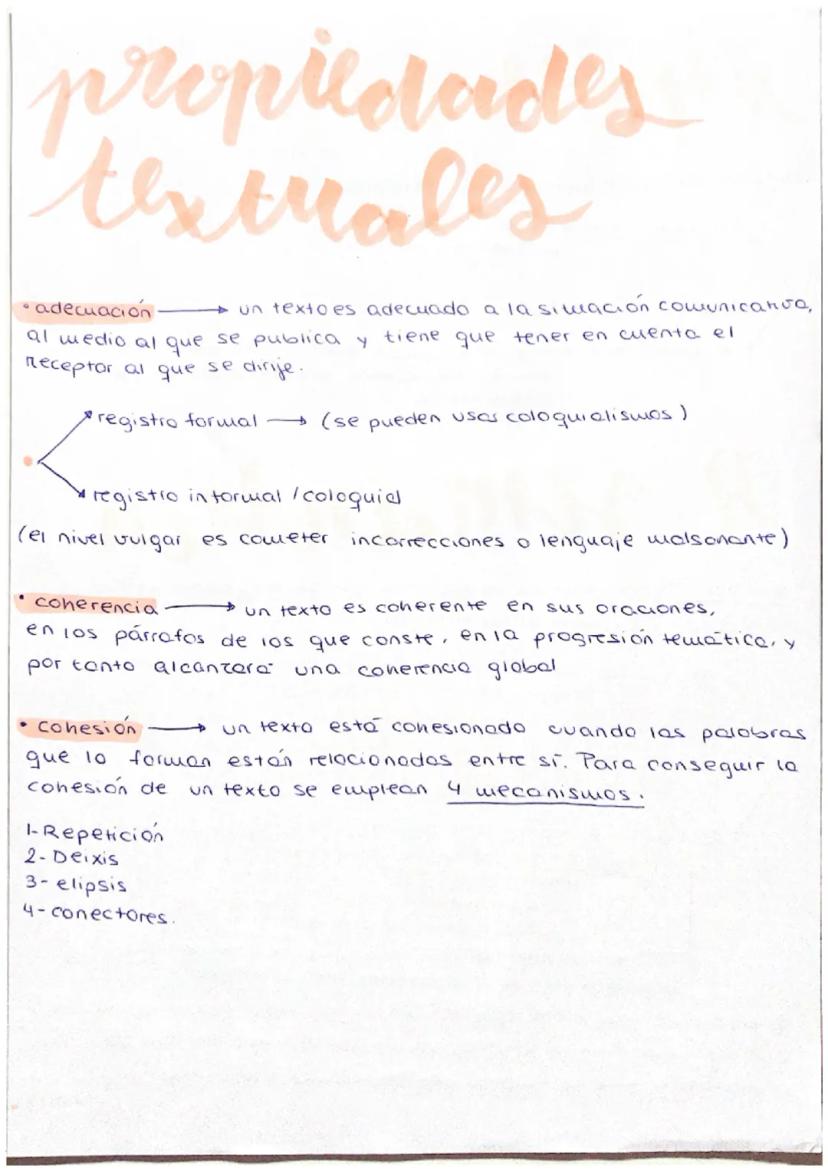 propiedades
textuales
• adecuación → un texto es adecuado a la situación comunicativa,
al medio al que se publica y tiene que tener en cuenta el
receptor al que se dirije.
registro formal → (se pueden usar coloquialismos)
registro informal / coloquial
(el nivel vulgar es cometer incorrecciones o lenguaje malsonante)
• coherencia → un texto es coherente en sus oraciones,
en los párrafos de los que conste, en la progresión temática, y
por tanto alcanzará una coherencia global
• cohesión → un texto está cohesionado cuando las palabras
que lo forman están relacionadas entre sí. Para conseguir la
cohesión de un texto se emplean 4 mecanismos.
1-Repetición
2-Deixis
3-elipsis
4-conectores.